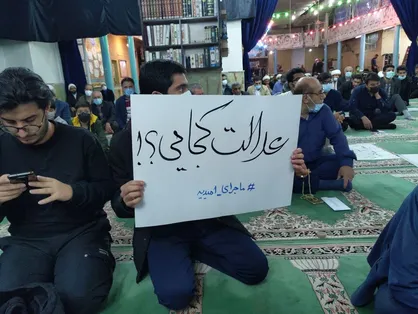 عدالت کجایی؟!
#ماجرای_امیدیه